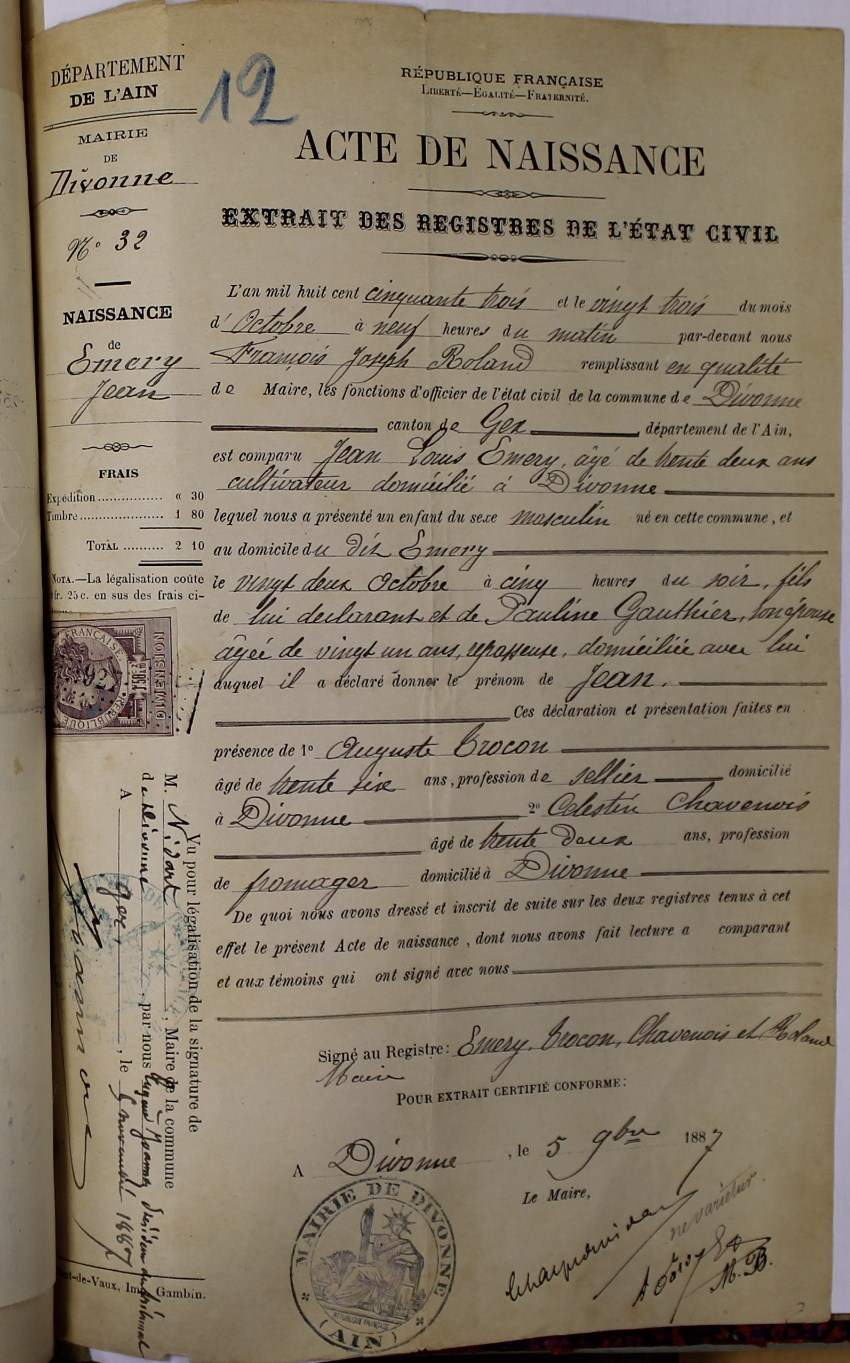 DÉPARTEMENT
DE L'AIN
MAIRIE
DE
Divonne
N° 32
NAISSANCE
de
Emery
Jean
FRAIS
Expédition ................ « 30
Timbre .................... 1 80
TOTAL .......... 2 10
NOTA.—La légalisation coûte
fr. 25 c. en sus des frais ci-
12
RÉPUBLIQUE FRANÇAISE
LIBERTÉ—ÉGALITÉ—FRATERNITÉ.
ACTE DE NAISSANCE
EXTRAIT DES REGISTRES DE L'ÉTAT CIVIL
L'an mil huit cent cinquante trois et le vingt trois du mois
d'Octobre à neuf heures du matin par-devant nous
François Joseph Roland remplissant en qualité
de Maire, les fonctions d'officier de l'état civil de la commune de Divonne
canton de Gex, département de l'Ain,
est comparu Jean Louis Emery, âgé de trente deux ans
cultivateur domicilié à Divonne
lequel nous a présenté un enfant du sexe masculin né en cette commune, et
au domicile du dit Emery
le vingt deux Octobre à cinq heures du soir, fils
de lui declarant et de Pauline Gauthier, son épouse
âgée de vingt un ans, repasseuse, domiciliée avec lui
auquel il a déclaré donner le prénom de Jean.
Ces déclaration et présentation faites en
présence de 1° Auguste Trocon
âgé de trente six ans, profession de sellier domicilié
à Divonne 2° Celestin Chavenois
âgé de trente deux ans, profession
de fromager domicilié à Divonne
De quoi nous avons dressé et inscrit de suite sur les deux registres tenus à cet
effet le présent Acte de naissance, dont nous avons fait lecture a comparant
et aux témoins qui ont signé avec nous
Signé au Registre: Emery, Trocon, Chavenois et Roland
Maire
POUR EXTRAIT CERTIFIÉ CONFORME:
A Divonne, le 5 9bre 1887
Le Maire,
ne varietur
M. B.
MAIRIE DE DIVONNE
RÉPUBLIQUE FRANÇAISE
(AIN)
DIMENSION
RÉPUBLIQUE FRANÇAISE
Vu pour légalisation de la signature de
M. Vidart, Maire de la commune
de Divonne, par nous
A Gex, le 5 novembre 1887
-de-Vaux, Imp. Gambin.